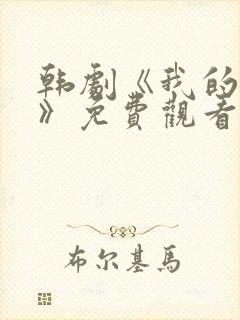 韩劇《我的
》免費觀看
布尔基馬